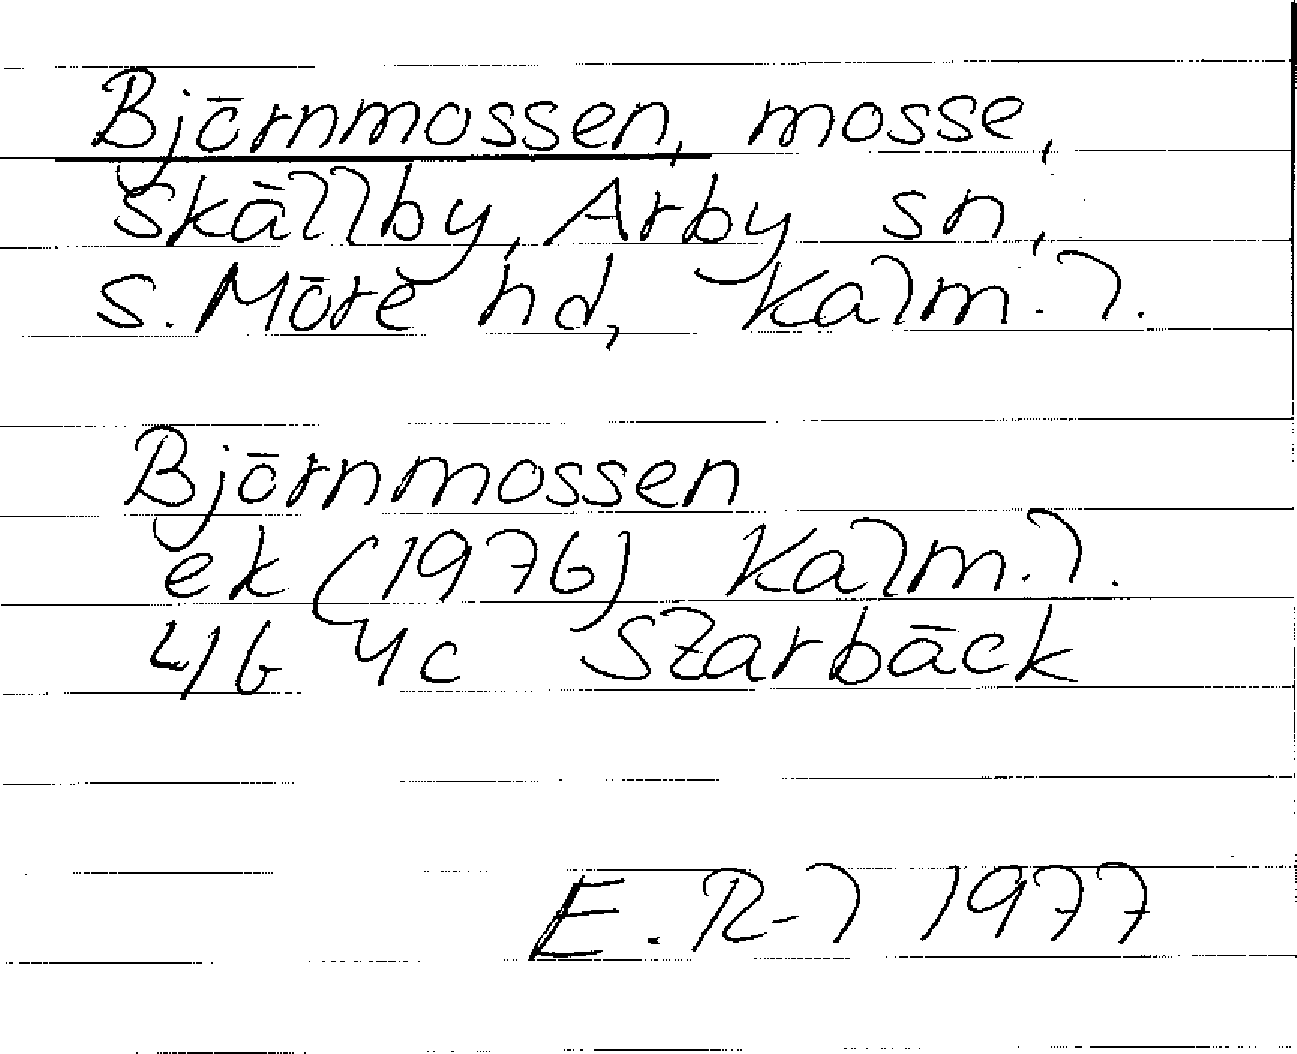 Björnmossen, mosse,
Skällby, Arby sn,
S. Möre hd, Kalm. l.
Björnmossen
ek (1976) Kalm. l.
4G 4c Skarbäck
E. R-l 1977